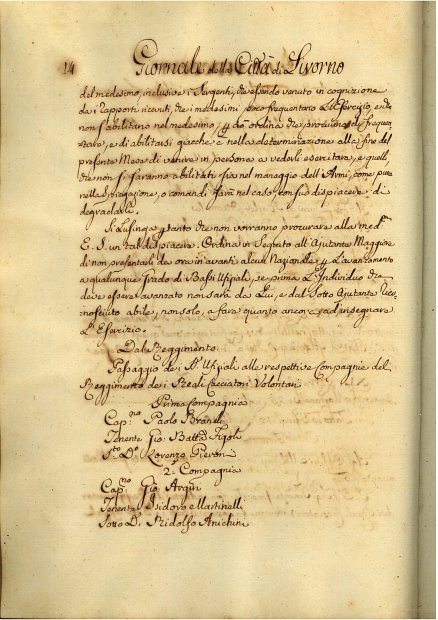 14 Giornale della Città di Livorno
del medesimo, inclusive i Sargenti, che essendo venuto in cognizione
da i rapporti ricevuti, che i medesimi poco frequentano L'Esercizio, e che
non s'abilitano nel medesimo; ordina che procurino di frequen-
tarlo, e di abilitarsi giacchè è nella determinazione alla fine del
presente Mese di venire in persona a vederli esercitare, e quelli,
che non si saranno abilitati sia nel maneggio dell'Armi, come pure
nella spiegazione, o comandi sarà nel caso, con suo dispiacere di
degradarli.
Si Lusinga tanto che non vorranno procurare alla med.
E. S. un tal dispiacere. Ordina in seguito all'Ajutante Maggiore
di non presentarle da ora in avanti alcun Nazionale L'avanzamento
a qualunque Grado di Bassi Ufiziali, se prima L'Individuo che
deve essere avanzato non sarà da Lui, e dal Sotto Ajutante rico-
nosciuto abile, non solo, a fare quanto ancora ad insegnare
L'Esercizio.
Dal Reggimento.
Passaggio dei Ufiziali alle respettive Compagnie del
Reggimento dei Reali Cacciatori Volontari
Prima Compagnia
Cap.no Paolo
Tenente Gio: Batta Figoli
S.to D.o Lorenzo Pieroni
2.a Compagnia
Cap.no Gio:
Tenente Isidoro Martinelli
Sotto D. Ridolfo Anichini